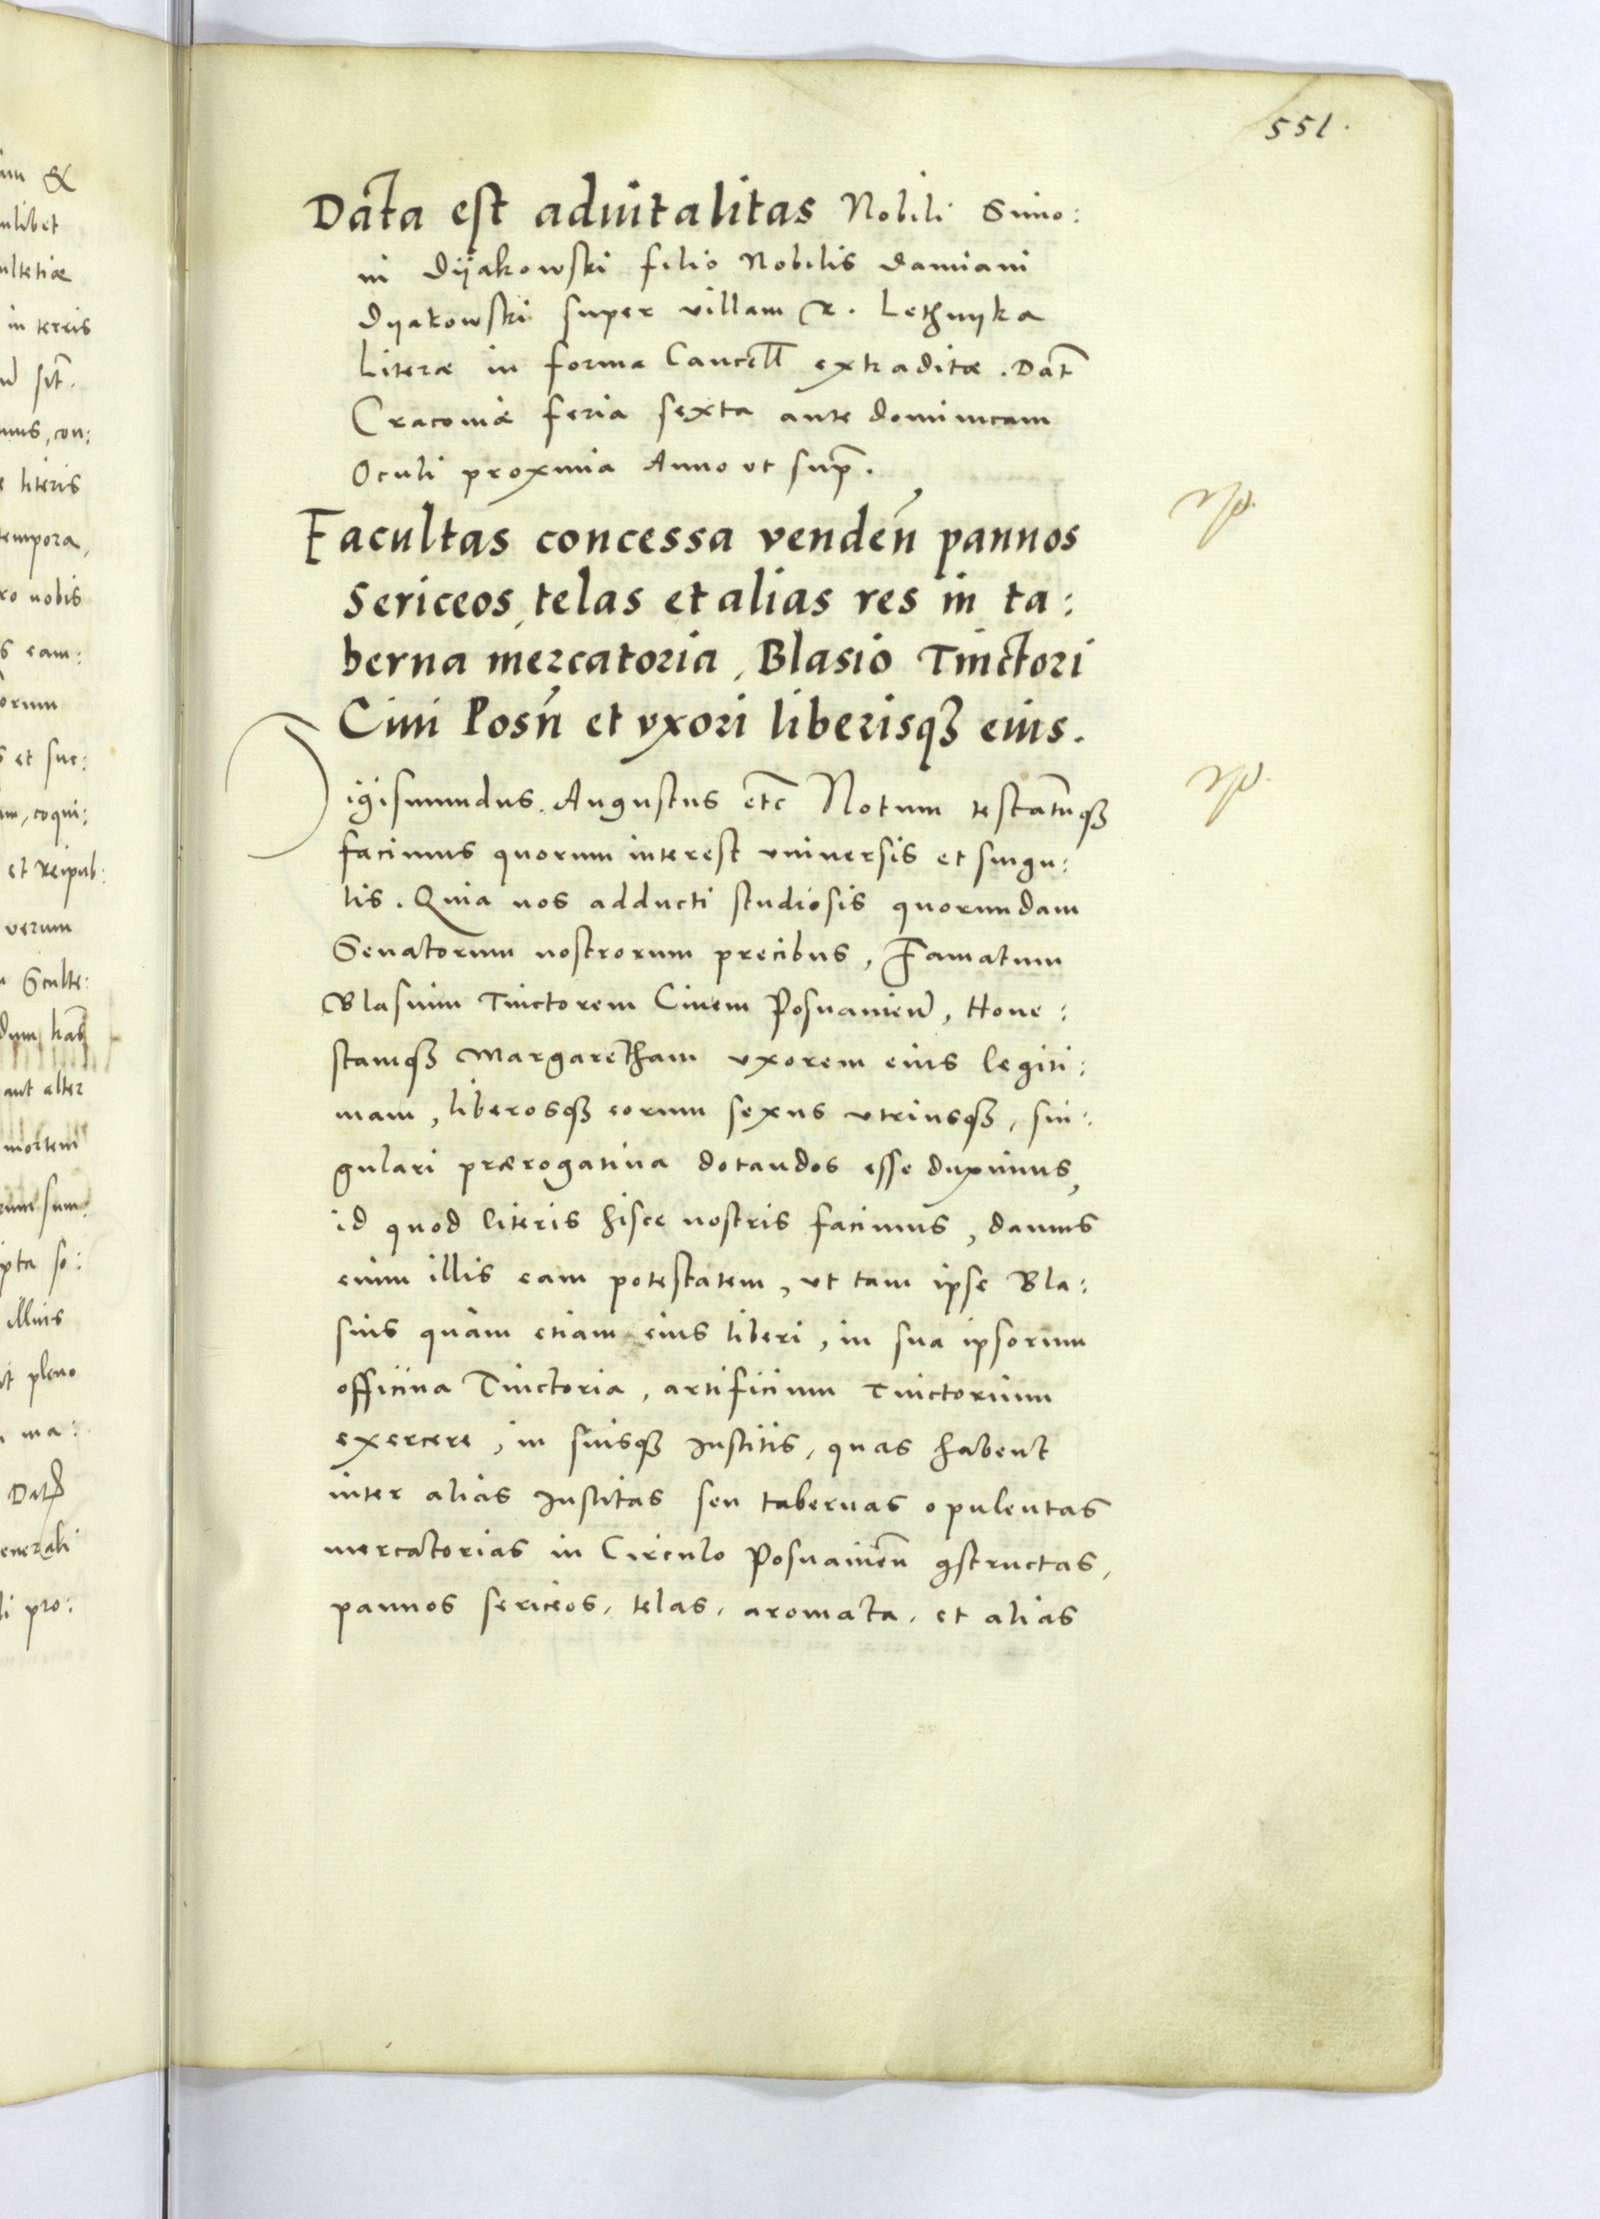 551.
Data est aduitalitas Nobili Simo:
ni Dÿakowski filio Nobilis Damiani
Dyakowski super villam R. Lethnyka
Literæ in forma Cancell extraditæ. Dat
Cracouiæ feria sexta ante dominicam
Oculi proxima Anno vt sup.
Facultas concessa venden pannos
sericeos, telas et alias res in ta:
berna mercatoria, Blasio Tinctori
Ciui Posn et vxori liberisqȝ eius.
Sigismundus Augustus etc Notum testatumqȝ
facimus quorum interest vniuersis et singu:
lis. Quia nos adducti studiosis quorundam
Senatorum nostrorum precibus, Famatum
Blasium Tinctorem Ciuem Posnanien, Hone:
stamqȝ Margaretham vxorem eius legiti:
mam, liberosqȝ eorum sexus vtriusqȝ, sin:
gulari prærogatiua dotandos esse duximus,
id quod literis hisce nostris facimus, damus
enim illis eam potestatem, vt tam ipse Bla:
sius quàm etiam eius liberi, in sua ipsorum
officina Tinctoria, artificium Tinctorium
exercere, in suisqȝ Institis, quas habent
inter alias Institas seu tabernas opulentas
mercatorias in Circulo Posnanien ꝯstructas,
pannos sericeos, telas, aromata, et alias